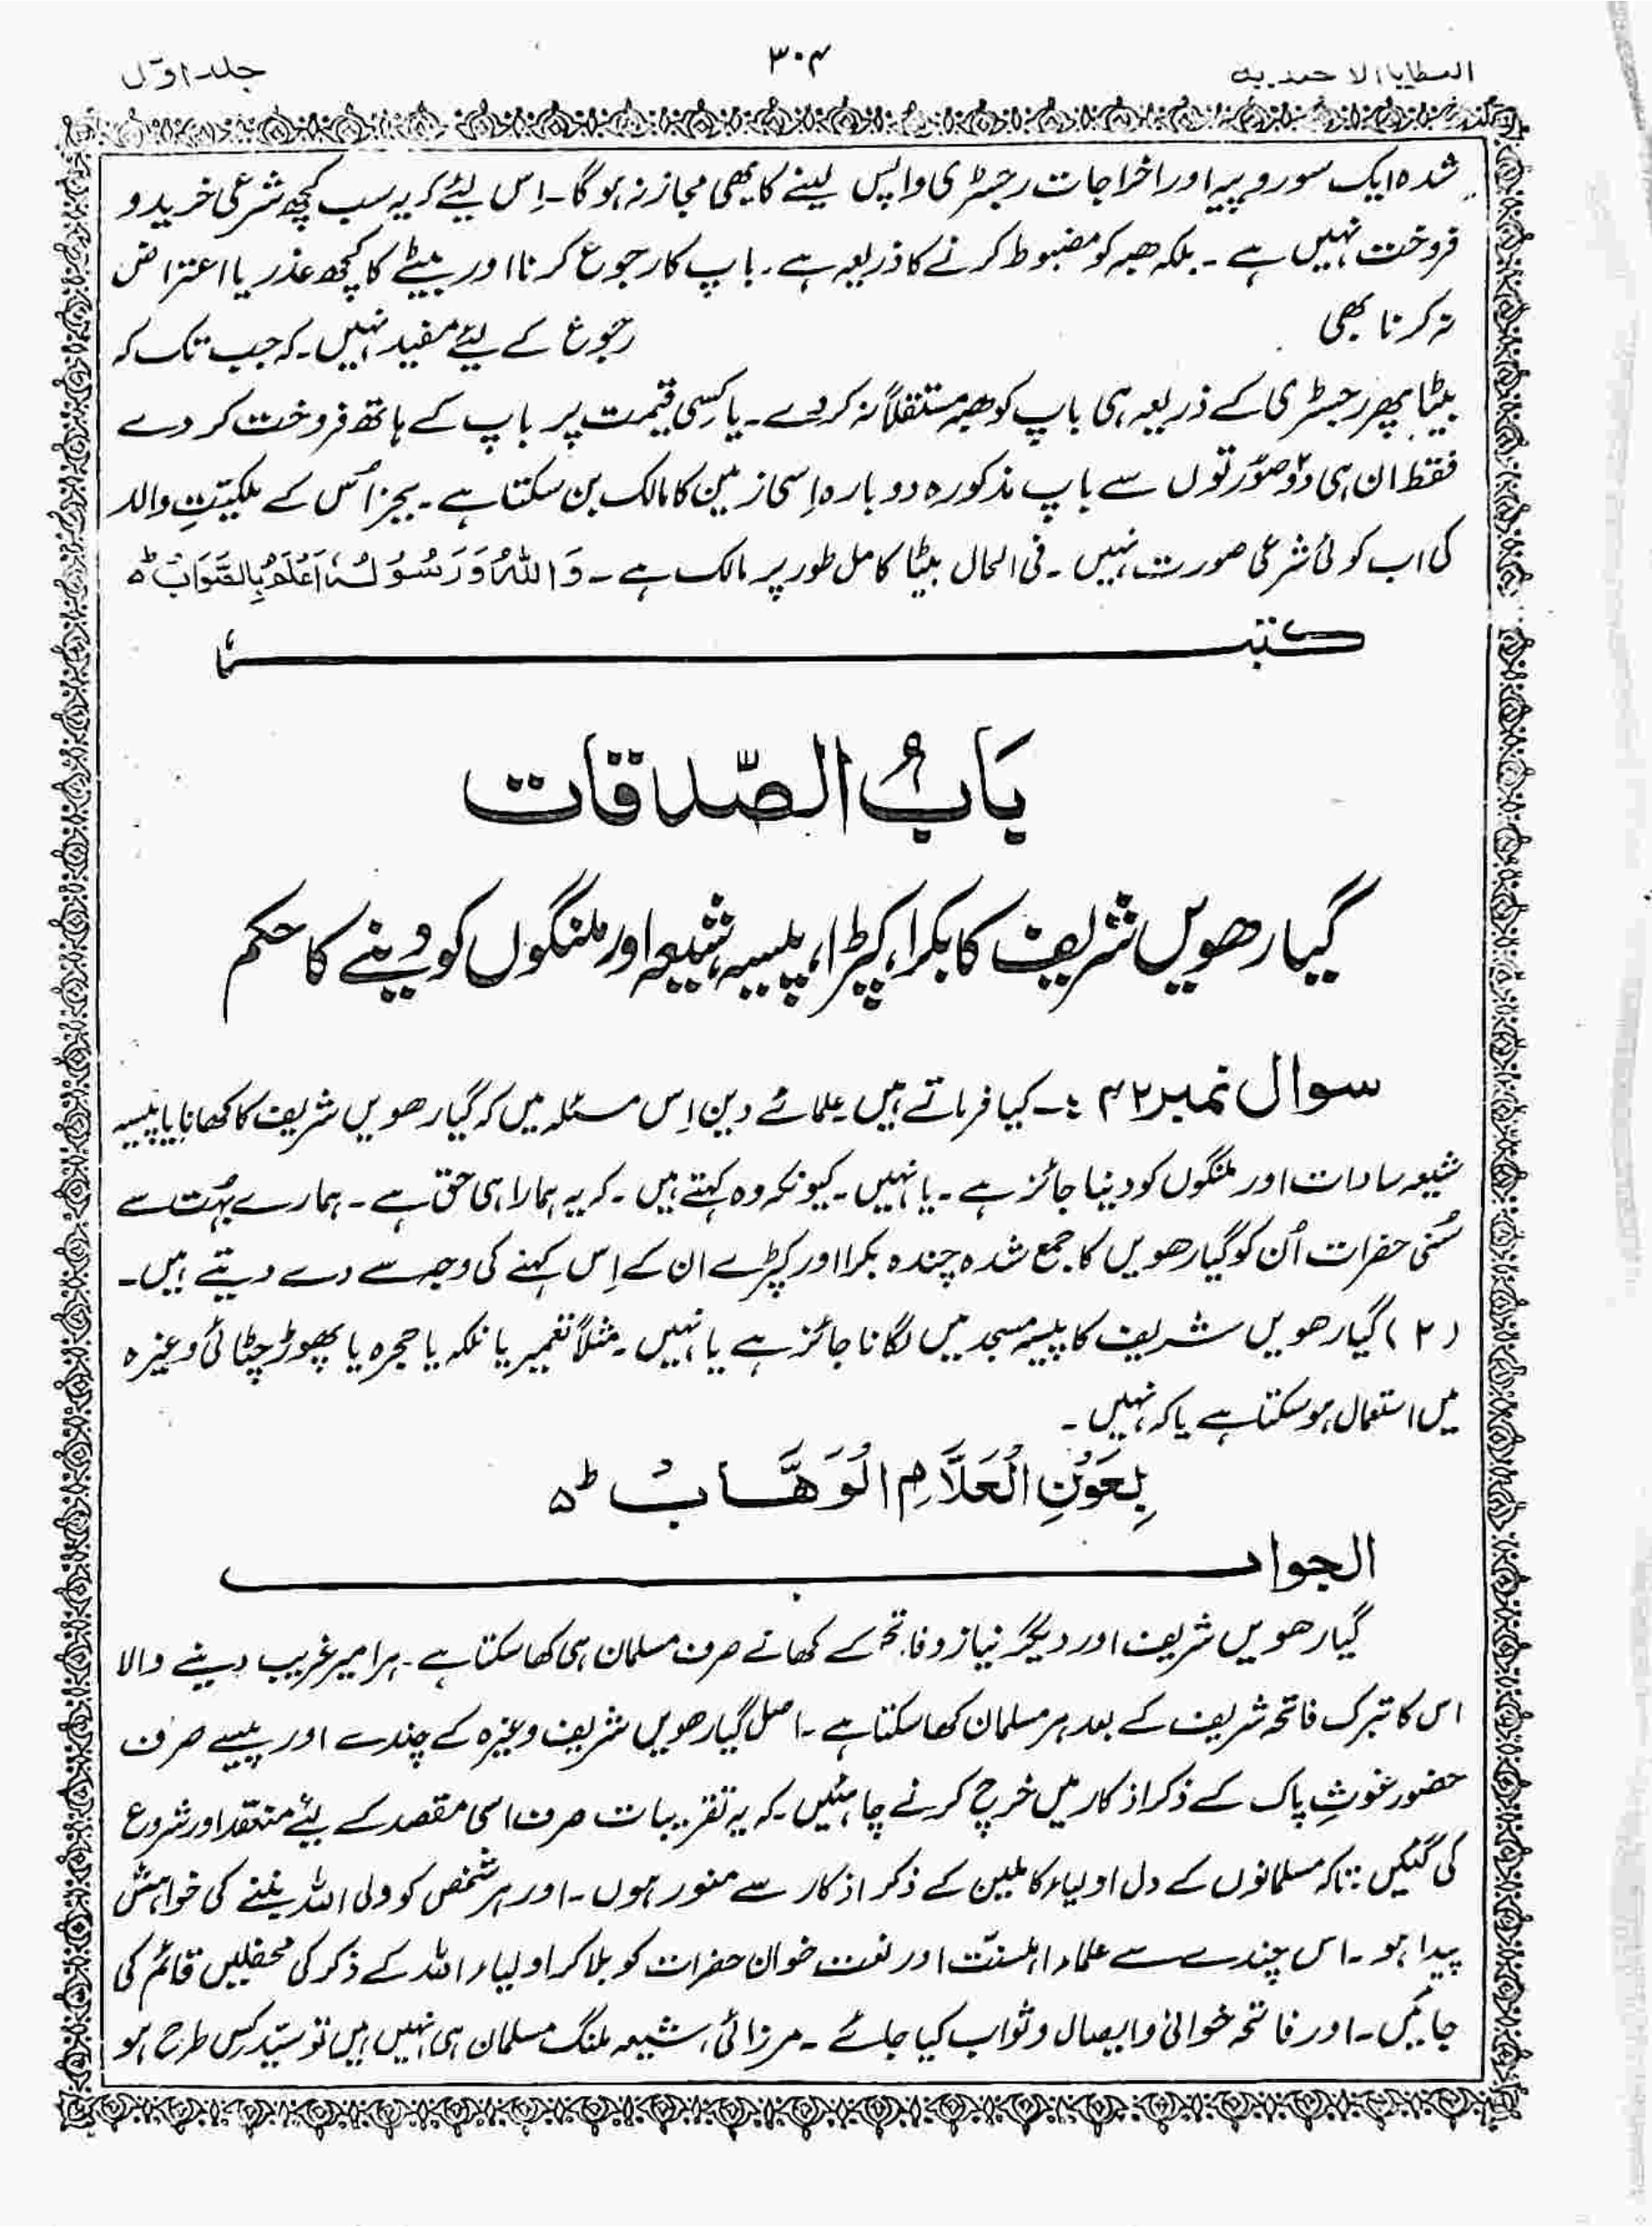 العطایا الاحمدیہ
۳۰۴
جلد اوّل
شدہ ایک سو روپیہ اور اخراجات رجسٹری واپس لینے کا بھی مجاز نہ ہوگا۔ اِس لئے کہ یہ سب کچھ شرعی خرید و
فروخت نہیں ہے۔ بلکہ ھبہ کو مضبوط کرنے کا ذریعہ ہے۔ باپ کا رجوع کرنا اور بیٹے کا کچھ عذر یا اعتراض
نہ کرنا بھی رجوع کے لئے مفید نہیں۔ کہ جب تک کہ
بیٹا پھر رجسٹری کے ذریعہ ہی باپ کو ھبہ مستقلاً نہ کردے۔ یا کسی قیمت پر باپ کے ہاتھ فروخت کر دے
فقط ان ہی دو صورتوں سے باپ مذکورہ دوبارہ اِسی زمین کا مالک بن سکتا ہے۔ بجز اُس کے ملکیتِ والد
کی اب کوئی شرعی صورت نہیں۔ فی الحال بیٹا کامل طور پر مالک ہے۔ وَاللّٰہُ وَرَسُوْلُہٗ اَعْلَمُ بِالصَّوَابْ ط ہ
کتبہ
بَابُ الصّدقات
گیارھویں شریف کا بکرا، کپڑا، پیسہ شیعہ اور ملنگوں کو دینے کا حکم
سوال نمبر ۴۲ :۔ کیا فرماتے ہیں علمائے دین اِس مسئلہ میں کہ گیارھویں شریف کا کھانا یا پیسہ
شیعہ سادات اور ملنگوں کو دینا جائز ہے۔ یا نہیں۔ کیونکہ وہ کہتے ہیں۔ کہ یہ ہمارا ہی حق ہے۔ ہمارے بہُت سے
سُنی حضرات اُن کو گیارھویں کا جمع شدہ چندہ بکرا اور کپڑے ان کے اِس کہنے کی وجہ سے دے دیتے ہیں۔
(۲) گیارھویں شریف کا پیسہ مسجد میں لگانا جائز ہے یا نہیں۔ مثلاً تعمیر یا نلکہ یا حجرہ یا پھوڑ چٹائی وغیرہ
میں استعمال ہو سکتا ہے یا کہ نہیں۔
بِعَوْنِ الْعَلَّامِ الْوَھَّابْ ط ہ
الجواب
گیارھویں شریف اور دیگر نیاز و فاتحہ کے کھانے صرف مسلمان ہی کھا سکتا ہے۔ ہر امیر غریب دینے والا
اس کا تبرک فاتحہ شریف کے بعد ہر مسلمان کھا سکتا ہے۔ اصل گیارھویں شریف وغیرہ کے چندے اور پیسے صرف
حضور غوثِ پاک کے ذکر اذکار میں خرچ کرنے چاہئیں۔ کہ یہ تقریبات صرف اسی مقصد کے لئے منعقد اور شروع
کی گئیں: تاکہ مسلمانوں کے دل اولیاء کاملین کے ذکر اذکار سے منور ہوں۔ اور ہر شخص کو ولی اللہ بننے کی خواہش
پیدا ہو۔ اس چندے سے علماء اہلسنّت اور نعت خوان حضرات کو بلا کر اولیاء اللہ کے ذکر کی محفلیں قائم کی
جائیں۔ اور فاتحہ خوانی و ایصال و ثواب کیا جائے۔ مرزائی، شیعہ ملنگ مسلمان ہی نہیں ہیں تو سیّد کس طرح ہو